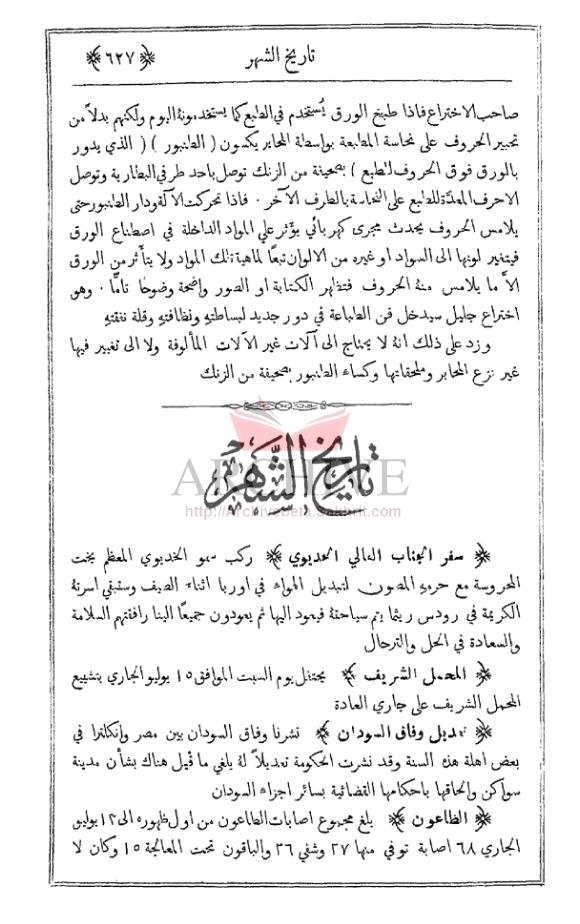 تاريخ الشهر
﴿ ٦٢٧ ﴾
صاحب الاختراع فاذا طبخ الورق يُستخدم في الطبع كما يستخدمونهُ اليوم ولكنهم بدلاً من
تحبير الحروف على نحاسة المطبعة بواسطة المحابر يكسون ( الطنبور ) ( الذي يدور
بالورق فوق الحروف للطبع ) بصحيفة من الزنك توصل باحد طرفي البطارية وتوصل
الاحرف المعدَّة للطبع على النحاسة بالطرف الآخر . فاذا تحركت الآلة ودار الطنبور حتى
يلامس الحروف يحدث مجرى كهربائي يؤثر علي المواد الداخلة في اصطناع الورق
فيتغير لونها الى السواد او غيره من الالوان تبعًا لماهية تلك المواد ولا يتأثر من الورق
الاَّ ما يلامس منهُ الحروف فتظهر الكتابة او الصور واضحة وضوحًا تامًّا . وهو
اختراع جليل سيدخل فن الطباعة في دور جديد لبساطتهِ ونظافتهِ وقلة نفقتهِ
وزد على ذلك انهُ لا يحتاج الى آلات غير الآلات المألوفة ولا الى تغيير فيها
غير نزع المحابر وملحقاتها وكساء الطنبور بصحيفة من الزنك
تاريخ الشهر
ARCHIVE
http://Archivebeta.Sakhrit.com
﴿ سفر الجناب العالي الخديوي ﴾ ركب سمو الخديوي المعظم يخت
المحروسة مع حرمهِ المصون لتبديل الهواء في اوربا اثناء الصيف وستبقى اسرتهُ
الكريمة في رودس ريثما يتم سياحتهُ فيعود اليها ثم يعودون جميعًا الينا رافقتهم السلامة
والسعادة في الحل والترحال
﴿ المحمل الشريف ﴾ يحتفل يوم السبت الموافق ١٥ يوليو الجاري بتشييع
المحمل الشريف على جاري العادة
﴿ تعديل وفاق السودان ﴾ نشرنا وفاق السودان بين مصر وانكلترا في
بعض اهلة هذه السنة وقد نشرت الحكومة تعديلاً لهُ يلغي ما قيل هناك بشأن مدينة
سواكن والحاقها باحكامها القضائية بسائر اجزاء السودان
﴿ الطاعون ﴾ بلغ مجموع اصابات الطاعون من اول ظهوره الى ١٢ يوليو
الجاري ٦٨ اصابة توفي منها ٢٧ وشفي ٢٦ والباقون تحت المعالجة ١٥ وكان لا